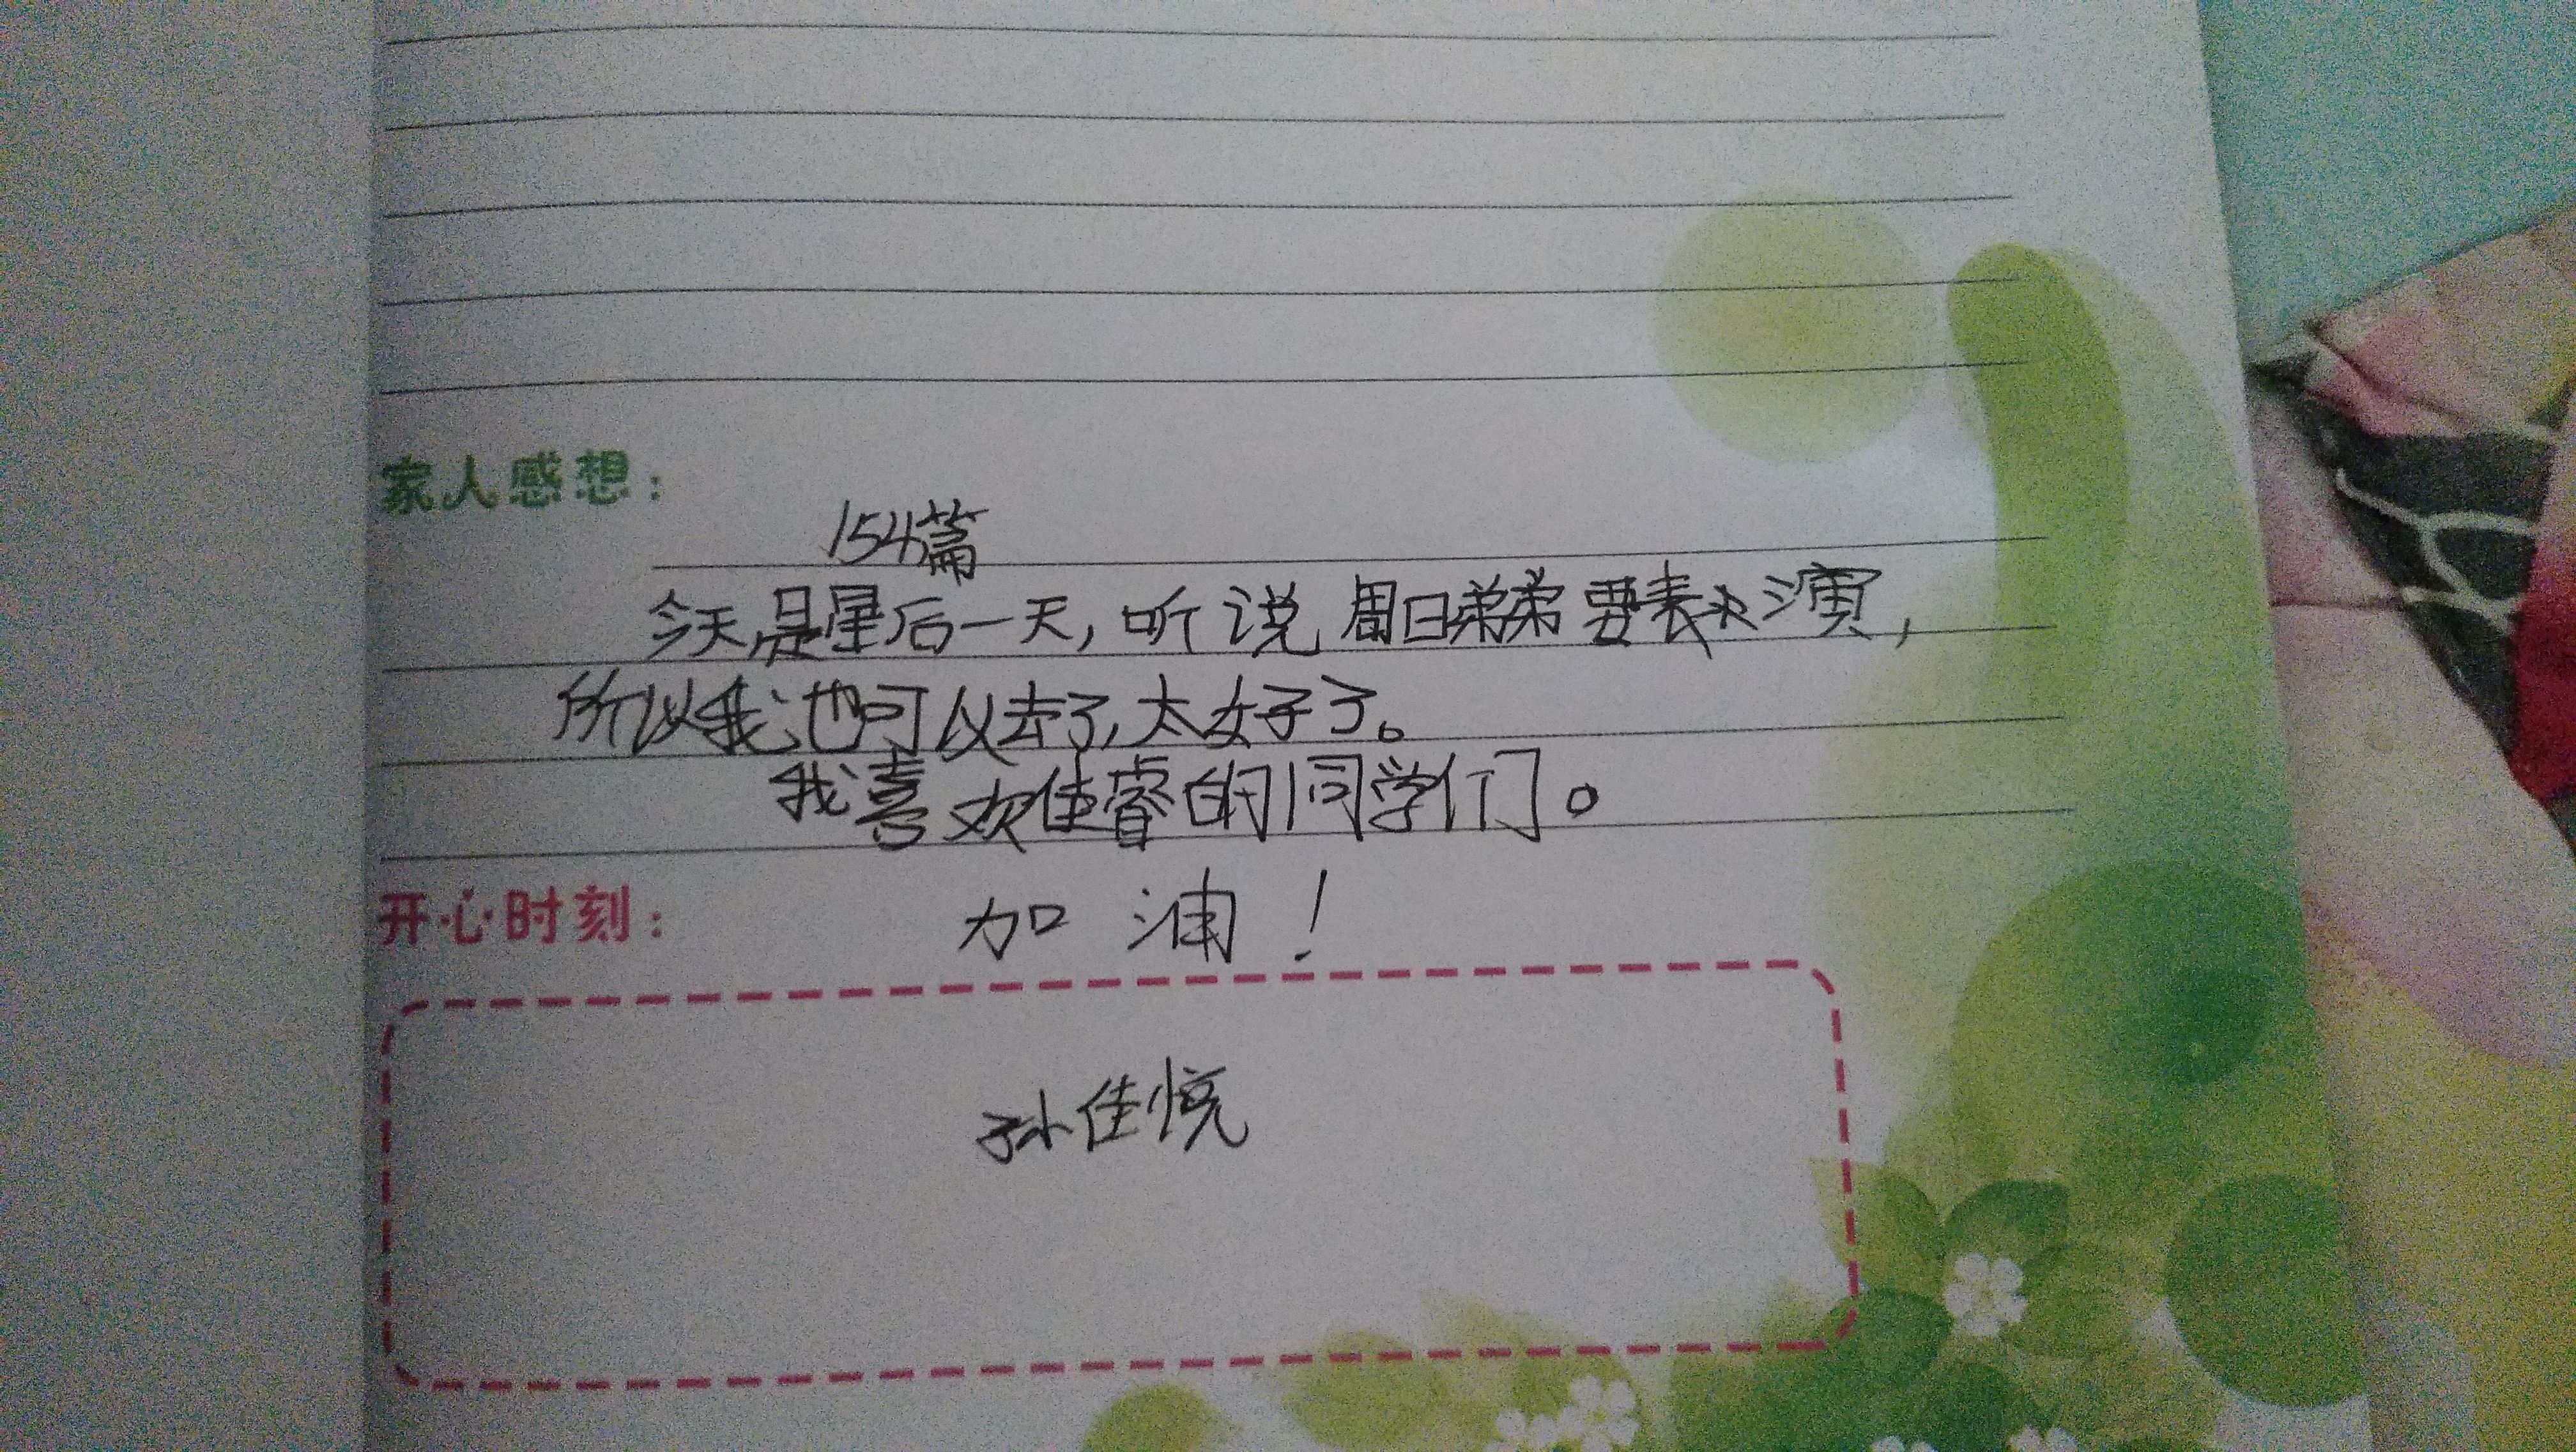 家人感想：
154篇
今天是星后一天，听说周日弟弟要表演，
所以我也可以去了，太好了。
我喜欢佳睿的同学们。
开心时刻：
加油！
孙佳悦